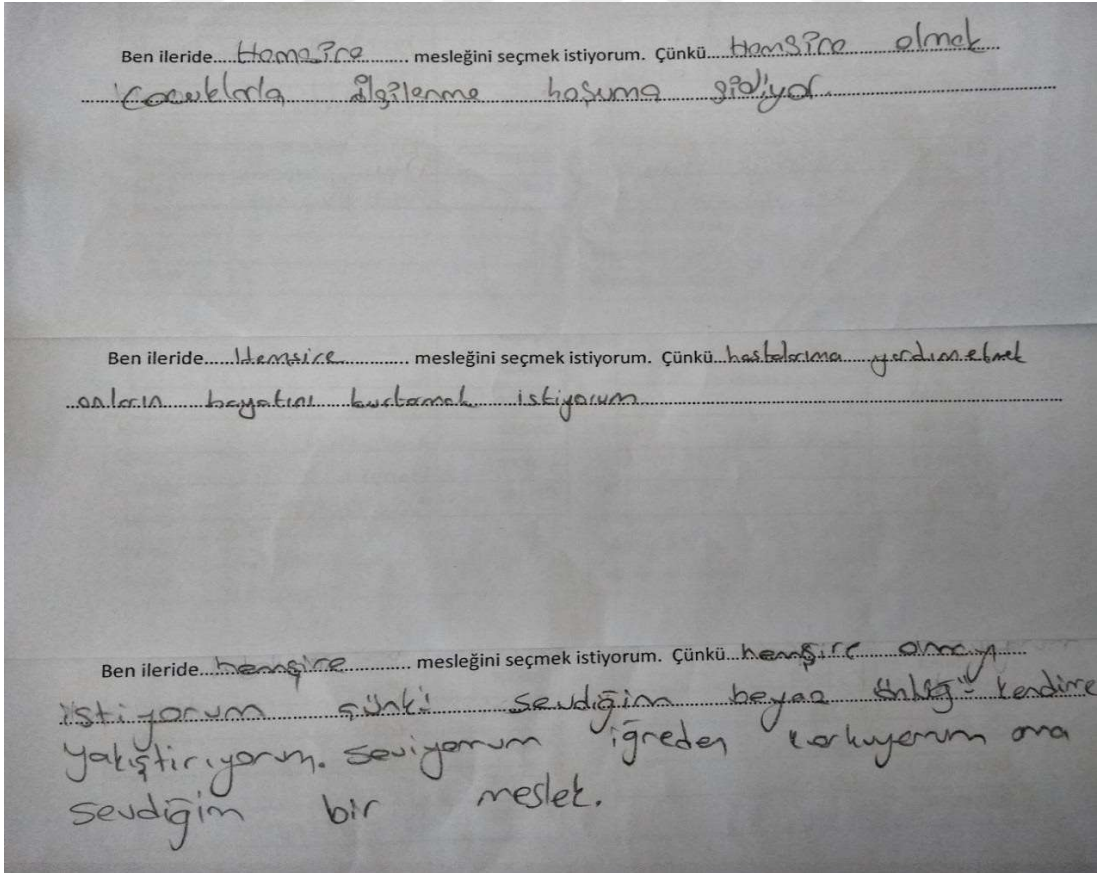 Ben ileride....Hemşire......... mesleğini seçmek istiyorum. Çünkü....Hemşire olmek...
Çocuklarla ilgilenme hoşuma gidiyor.
Ben ileride.....Hemsire............. mesleğini seçmek istiyorum. Çünkü...hastalarıma yardım etmek
onların hayatını kurtamak istiyorum
Ben ileride...hemşire.............. mesleğini seçmek istiyorum. Çünkü...hemşire omayı
istiyorum çünki sevdiğim beyaz önlüğü kendime
yakıştırıyorum. seviyorum iğreden korkuyorum ama
sevdiğim bir meslek.